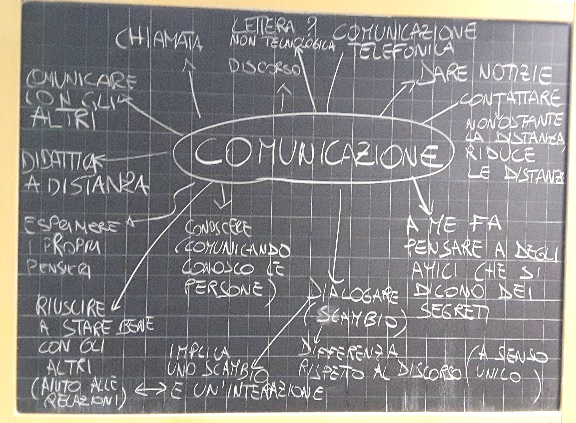 CHIAMATA
LETTERA ?
NON TECNOLOGICA
COMUNICAZIONE
TELEFONICA
DISCORSO
DARE NOTIZIE
COMUNICARE
CON GLI
ALTRI
CONTATTARE
NONOSTANTE
LA DISTANZA,
RIDUCE
LE DISTANZE
COMUNICAZIONE
DIDATTICA
A DISTANZA
ESPRIMERE
I PROPRI
PENSIERI
CONOSCERE
(COMUNICANDO
CONOSCO LE
PERSONE)
A ME FA
PENSARE A DEGLI
AMICI CHE SI
DICONO DEI
SEGRETI
DIALOGARE
(SCAMBIO)
RIUSCIRE
A STARE BENE
CON GLI
ALTRI
(AIUTO ALLE
RELAZIONI)
IMPLICA
UNO SCAMBIO
E UN'INTERAZIONE
DIFFERENZA
RISPETTO AL DISCORSO
(A SENSO
UNICO)